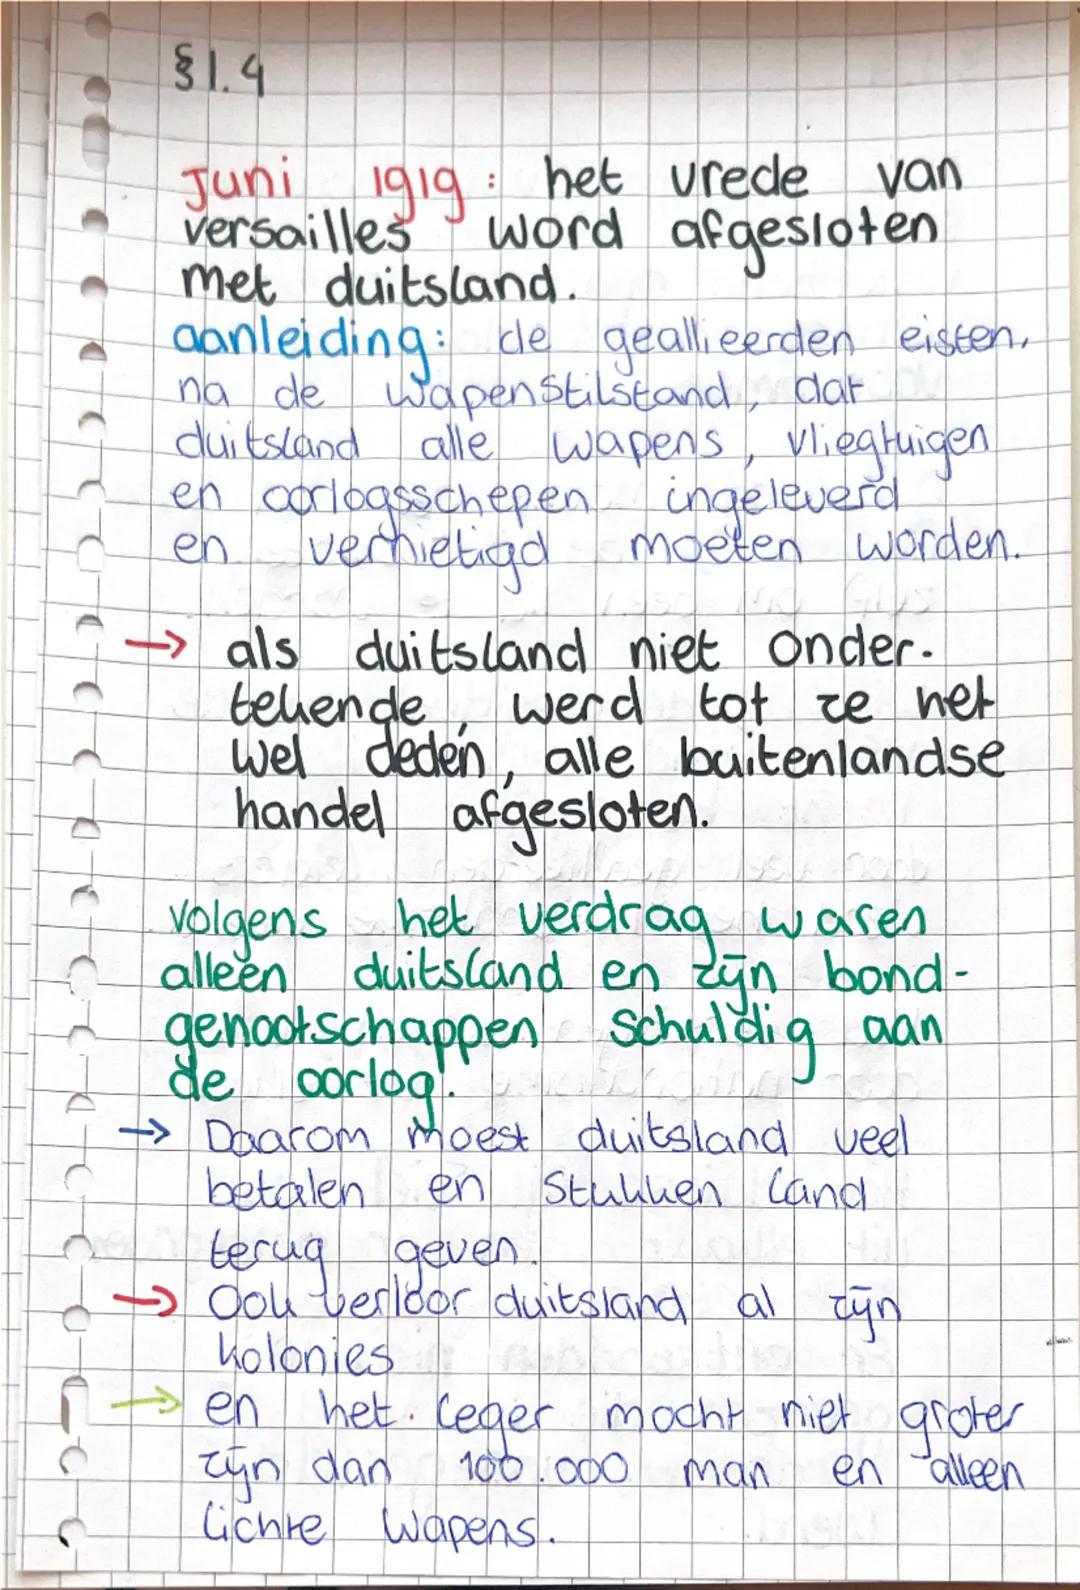 §1.4
Juni 1919: het vrede van
versailles word afgesloten
met duitsland.
aanleiding: de geallieerden eisten,
na de wapenstilstand, dat
duitsland alle wapens, vliegtuigen
en oorlogsschepen ingeleverd
en vernietigd moeten worden.
→ als duitsland niet onder-
tekende, werd tot ze het
wel deden, alle buitenlandse
handel afgesloten.
volgens het verdrag waren
alleen duitsland en zijn bond-
genootschappen schuldig aan
de oorlog.
→ Daarom moest duitsland veel
betalen en stukken land
terug geven.
→ Ook verloor duitsland al zijn
kolonies
→ en het leger mocht niet groter
zijn dan 100.000 man en alleen
lichte wapens.